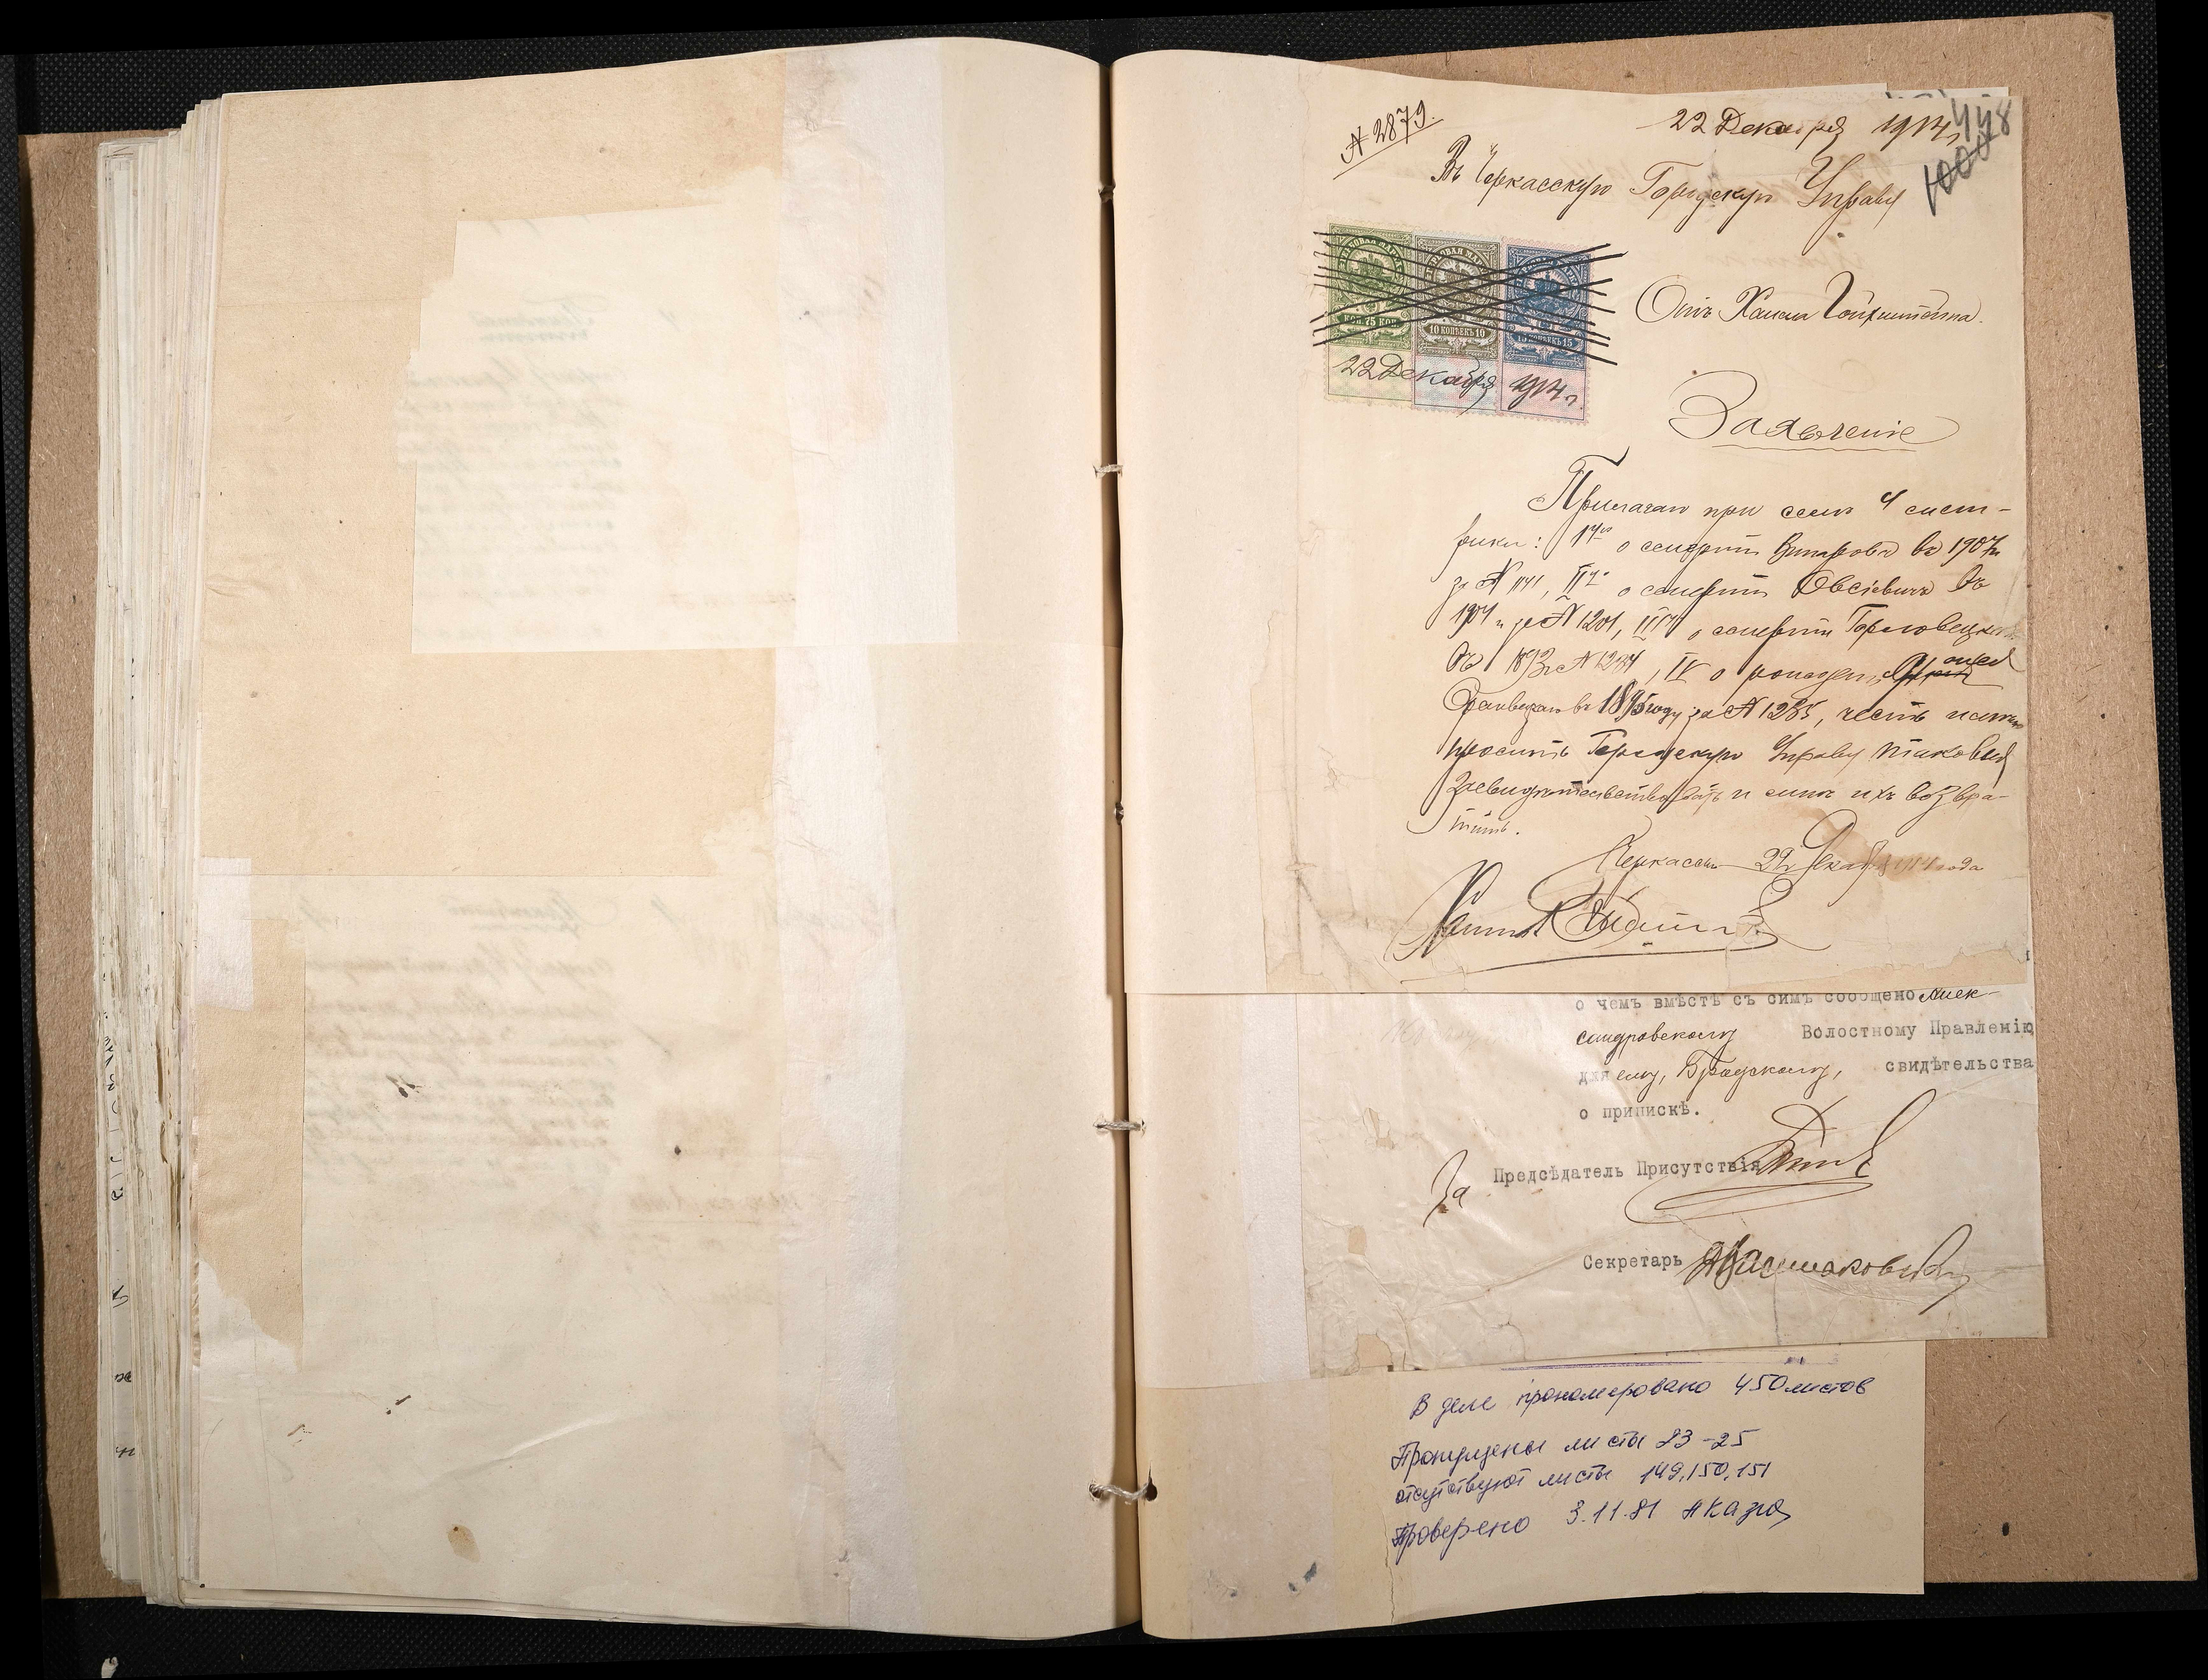 № 2879.
22 Декабря 1914 г.
448
1000
Въ Черкасскую Городскую Управу
КОП. 75 КОП.
10 КОПѢЕКЪ 10
15 КОПѢЕКЪ 15
22 Декабря 1914 г.
Отъ Хаима
Заявленіе
Прилагаю при семъ 4 мет-
рики: о смерти въ 1907 г.
за № 1141, II о смерти Овсіевичъ въ
1904 г. за № 1201, III о смерти
въ 1893 г. № 1284, IV о рожден.
въ 1895 году за № 1285, честь имею
просить Городскую Управу таковыя
засвидѣтельствовать и мнѣ ихъ возвра-
тить.
Черкассы 22 Декабря 1914 года
о чемъ вмѣстѣ съ симъ сообщено Алек-
сандровскому Волостному Правленію
для ему, Бродскому, свидѣтельства
о припискѣ.
За Предсѣдатель Присутствія
Секретарь
В деле пронумеровано 450 листов
Пропущены листы 23-25
отсутствуют листы 149, 150, 151
Проверено 3.11.81